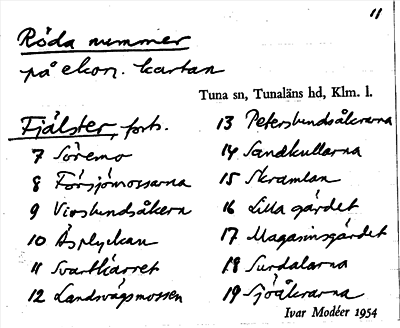 11
Röda nummer
på ekon. kartan
Tuna sn, Tunaläns hd, Klm. l.
Fjälster, forts.
7 Söremo
8 Försjömossarna
9 Virslundsåkern
10 Äsplyckan
11 Svartkärret
12 Landsvägsmossen
13 Peterslundsåkrarna
14 Sandkullarna
15 Skramlan
16 Lilla gärdet
17 Magasinsgärdet
18 Surdalarna
19 Sjöåkrarna
Ivar Modéer 1954